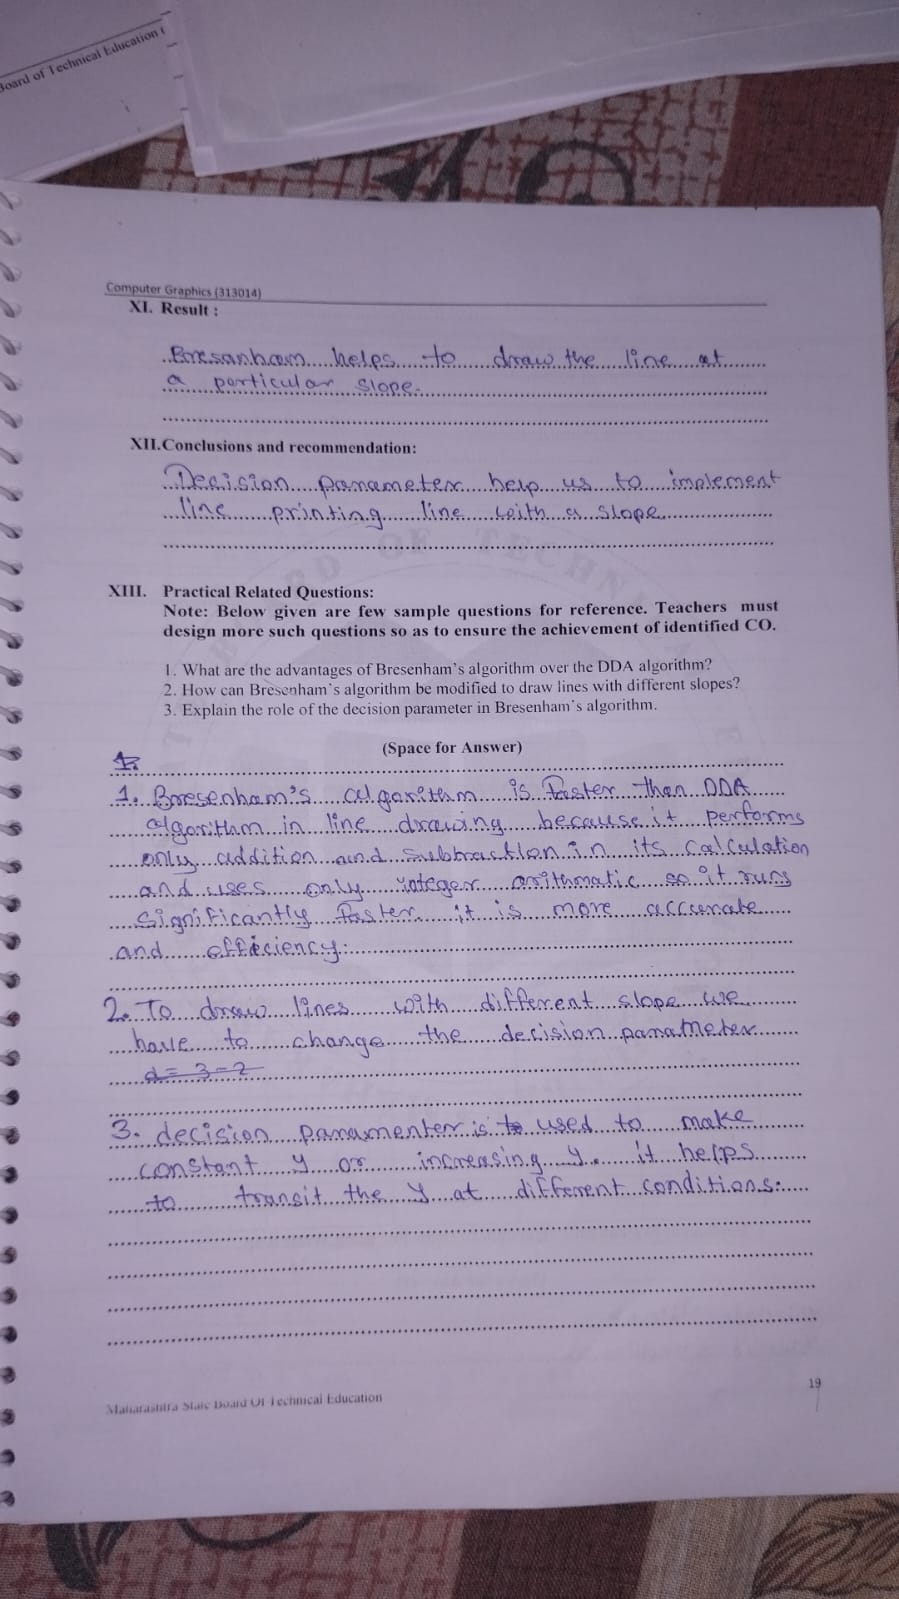 Board of Technical Education
Computer Graphics (313014)
XI. Result :
Bresanham helps to draw the line at
a particular slope.
XII. Conclusions and recommendation:
Decision parameter help us to implement
line printing line with a slope
XIII. Practical Related Questions:
Note: Below given are few sample questions for reference. Teachers must
design more such questions so as to ensure the achievement of identified CO.
1. What are the advantages of Bresenham's algorithm over the DDA algorithm?
2. How can Bresenham's algorithm be modified to draw lines with different slopes?
3. Explain the role of the decision parameter in Bresenham's algorithm.
(Space for Answer)
1. Bresenham's algorithm is Faster than DDA
algorithm in line drawing because it performs
only addition and subtraction in its calculation
and uses only integer arithmatic so it runs
significantly Faster. it is more accurate
and efficiency.
2. To draw lines with different slope we
have to change the decision parameter
d = 3-2
3. decision paramenter is to used to make
constant y or increasing y. it helps
to transit the y at different conditions.
19
Maharashtra State Board Of Technical Education